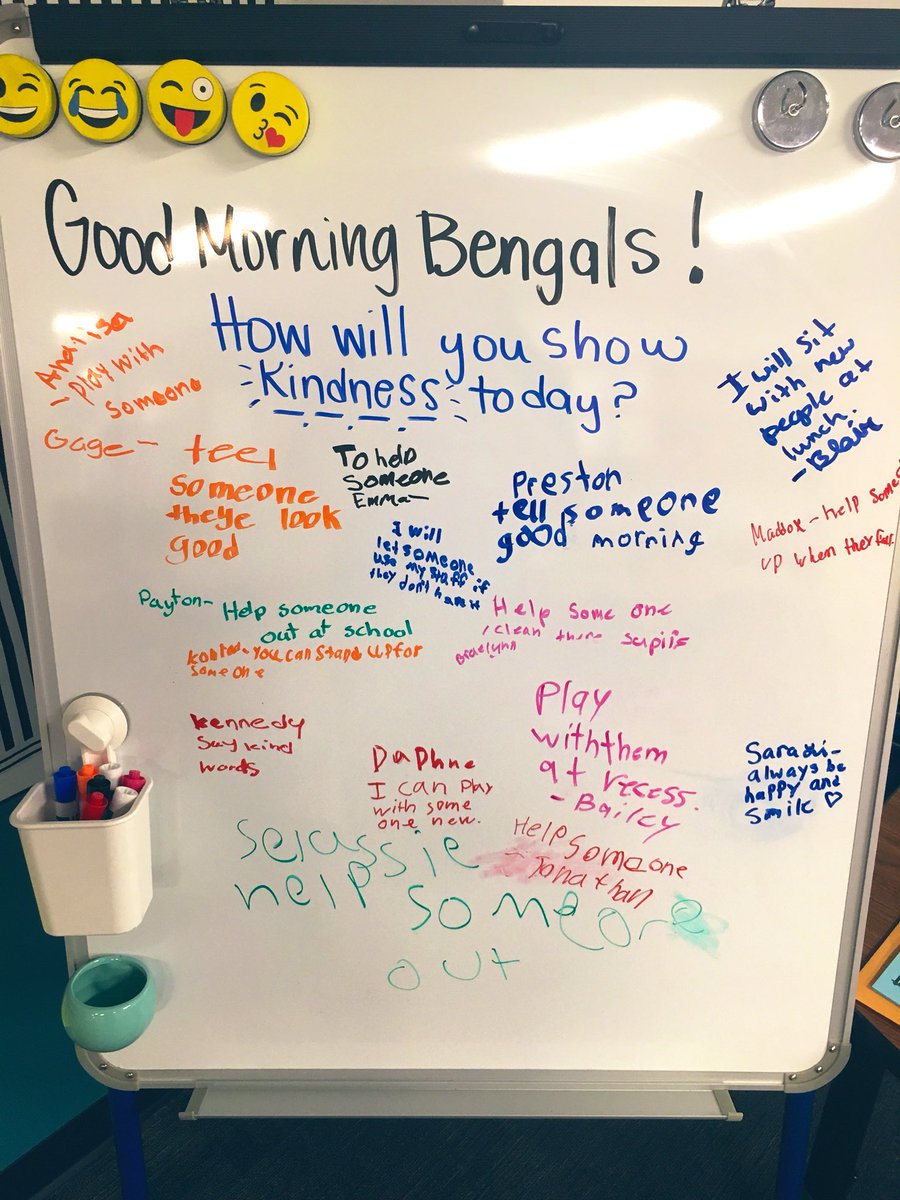 Good Morning Bengals!
How will you show
Kindness today?
Analisa
- play with
someone
I will sit
with new
people at
lunch.
- Blair
Gage - teel
someone
theye look
good
To help
someone
Emma -
Preston
tell someone
good morning
Maddox - help
up when they
I will
let someone
use my staff if
they don't have it
Payton - Help someone
out at school
Help some one
clean there
You can stand up for
someone
Play
with them
at recess.
- Bailey
Kennedy
say kind
words
Daphne
I can play
with some
one new.
always be
happy and
smile ♡
Help someone
- Jonathan
Selassie
help
someone
out